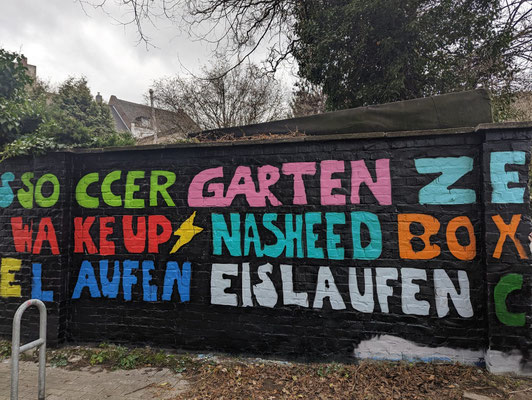 S SOCCER GARTEN ZE
WAKE UP NASHEED BOX
EL LAUFEN EISLAUFEN C